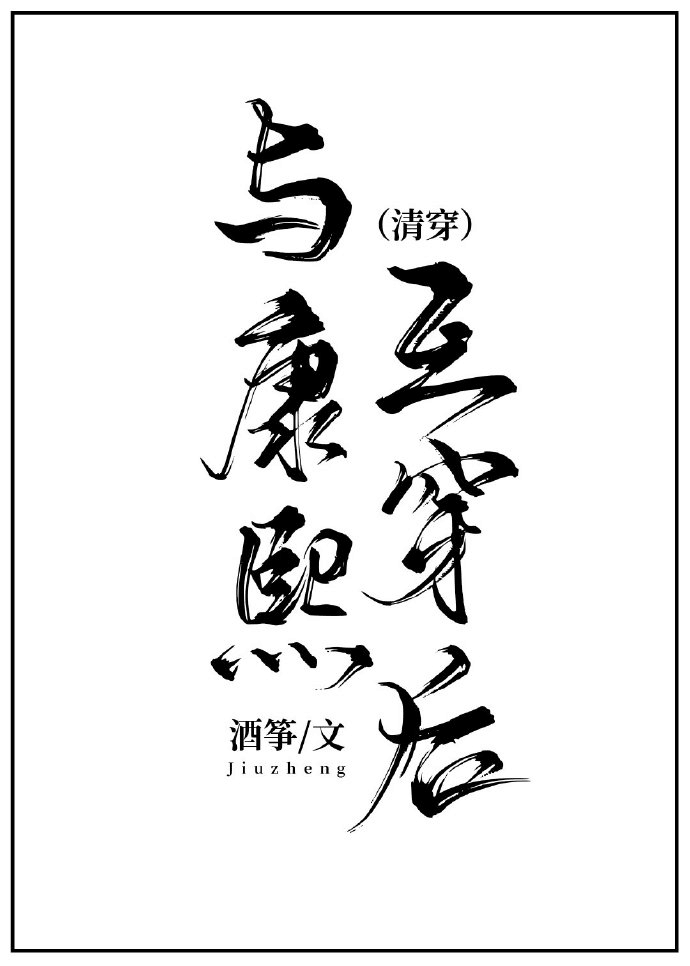 与康熙
(清穿)
互穿后
酒筝/文
Jiuzheng